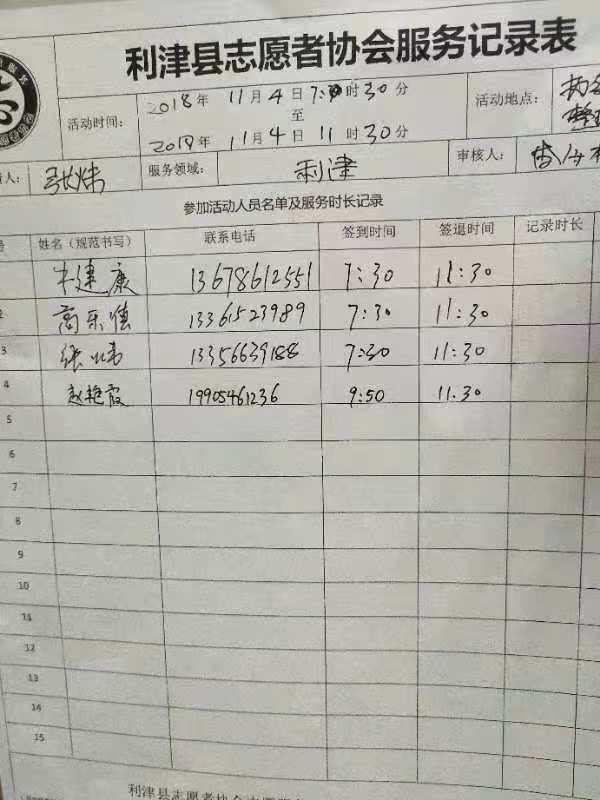 利津县志愿者协会服务记录表
活动时间： 2018年 11月 4日 7:30时 30分
至
2018年 11月 4日 11时 30分
活动地点：
责人： 张炜 服务领域： 利津 审核人：
参加活动人员名单及服务时长记录
号 姓名（规范书写） 联系电话 签到时间 签退时间 记录时长
健康 13678612551 7:30 11:30
2 高乐健 13361523989 7:30 11:30
3 张炜 13356639188 7:30 11:30
4 赵艳霞 19905461236 9:50 11.30
5
6
7
8
9
10
11
12
13
14
15
利津县志愿者协会志愿服